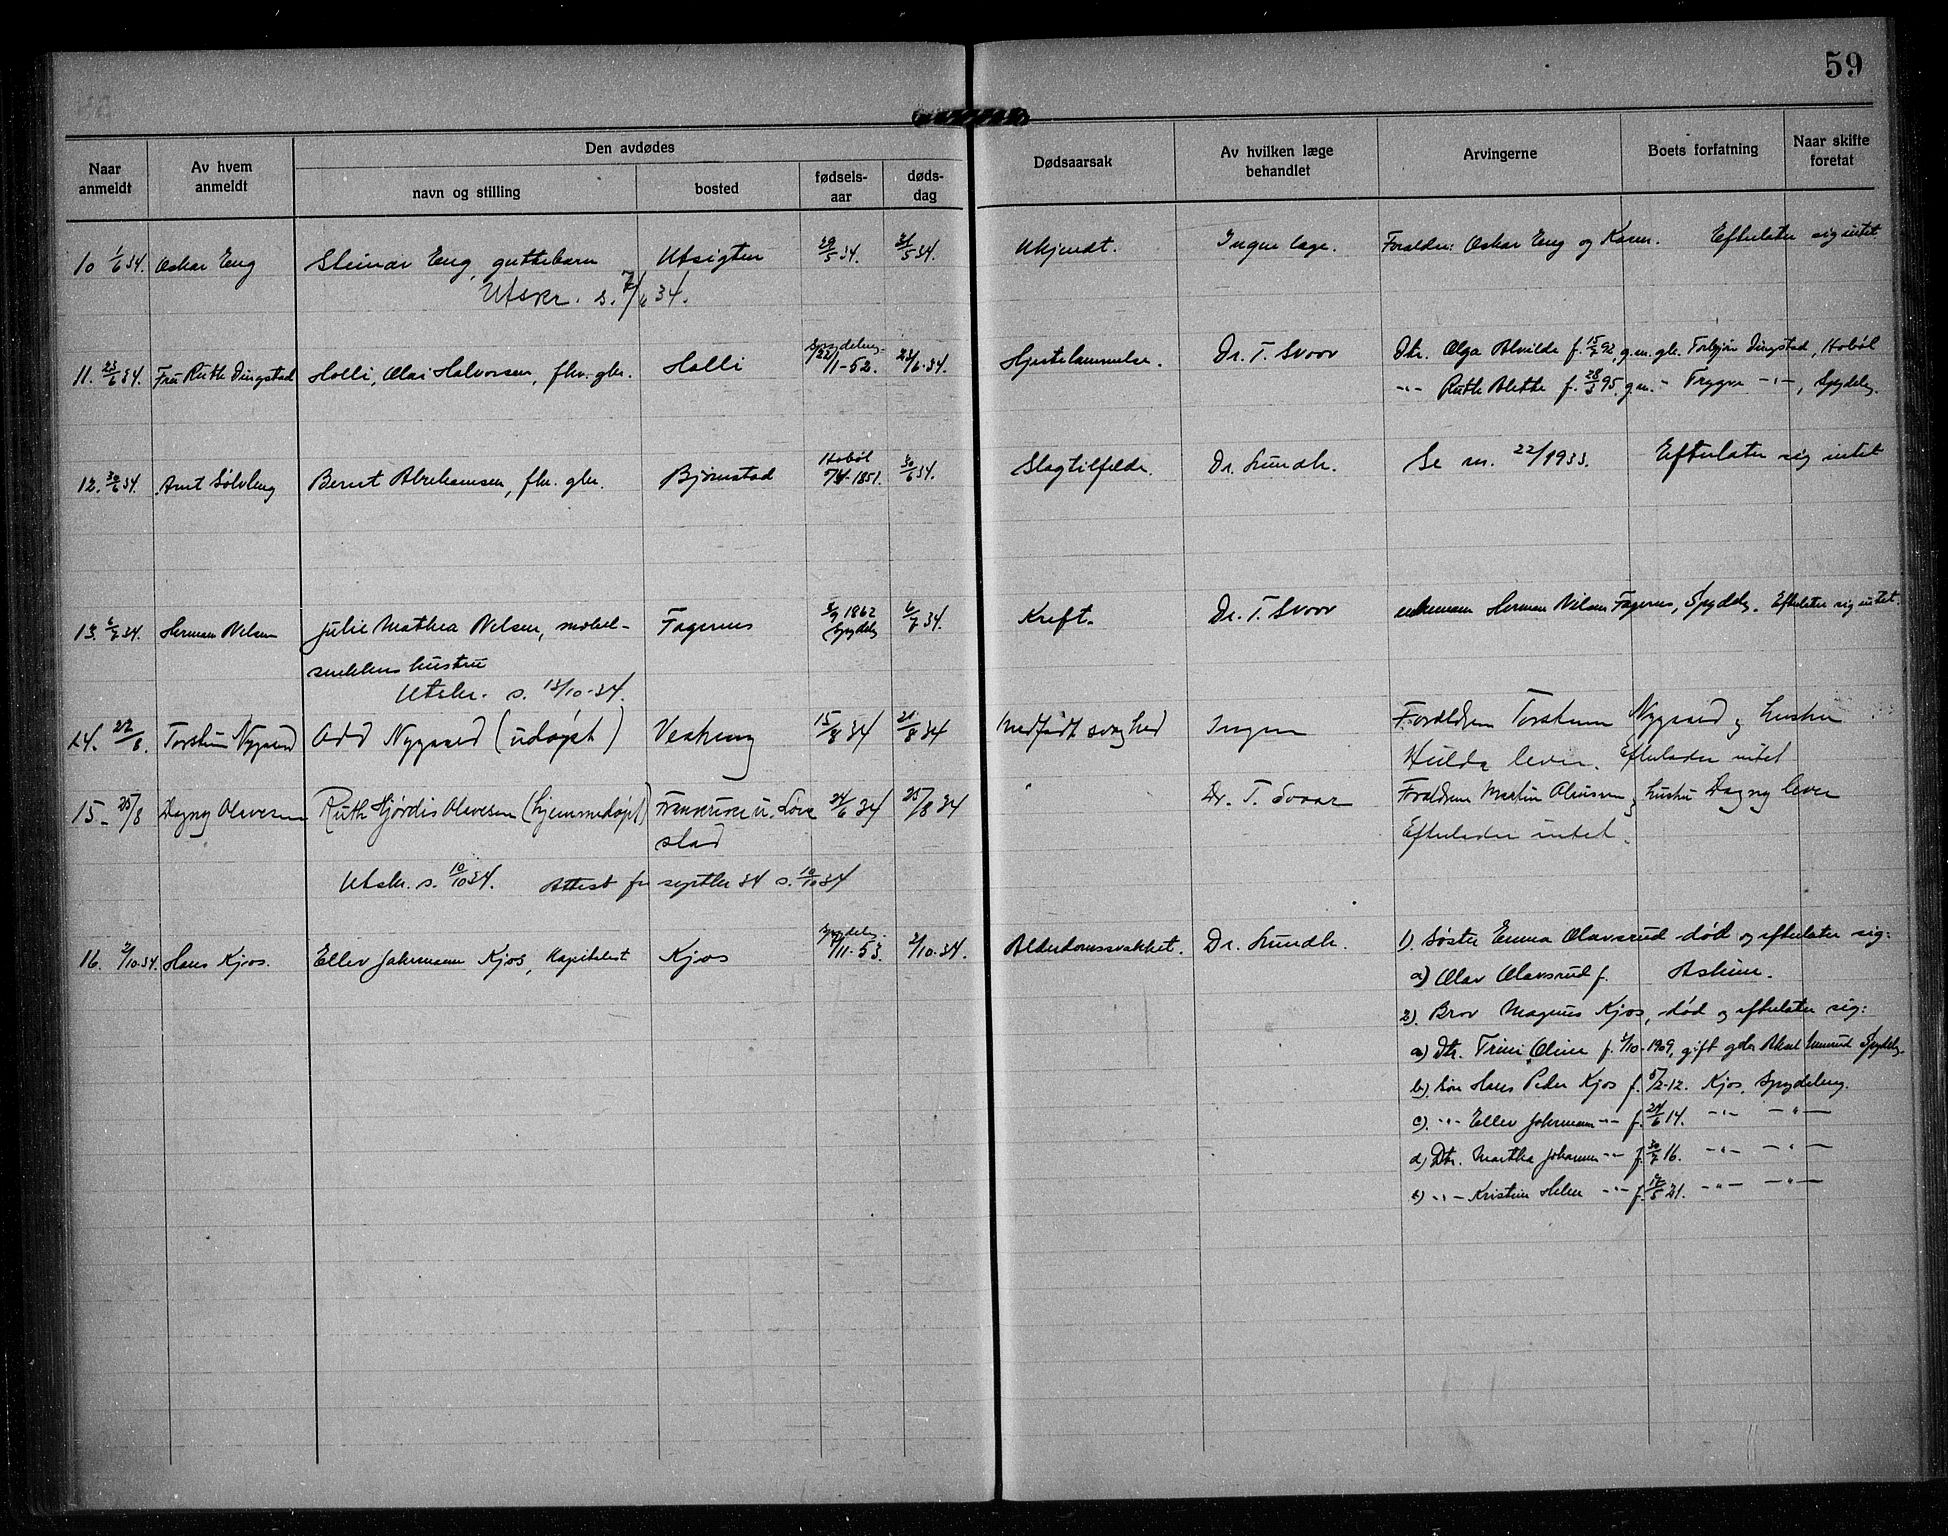 59
Naar anmeldt | Av hvem anmeldt | Den avdødes | Dødsaarsak | Av hvilken læge behandlet | Arvingerne | Boets forfatning | Naar skifte foretat
navn og stilling | bosted | fødsels-aar | døds-dag
10 1/6 34. Oskar Eng | Steinar Eng, guttebarn | Utsigten | 29/5 34. | 31/5 34. | Ukjendt. | Ingen læge. | Forældre: Oskar Eng og Karen. Efterlater sig intet
Utskr. s. 7/6 34.
11. 23/6 34. Fru Ruth Dingstad | Holli, Olai Halvorsen, fhv. gbr. | Holli | Spydeberg 22/1-52. | 23/6-34. | Hjertelammelse. | Dr. T. Svoor | Dtr. Olga Alvilde f. 15/2 92, g.m. gbr. Torbjørn Dingstad, Hobøl
-"- Ruth Alethe f. 28/3 95, g.m. - Trygve -"-, Spydeberg.
12. 30/6 34. Arnt Sølvberg | Bernt Abrahamsen, fhv. gbr. | Bjørnstad | Hobøl 5/4-1851. | 30/6 34. | Slagtilfelde. | Dr. Lundh. | Se nr. 22/1933. Efterlater sig intet
13. 6/7 34. Herman Nilsen | Julie Mathea Nilsen, møbel- | Fagernes | 8/9 1862 Spydeberg | 6/7 34. | Kreft. | Dr. T. Svoor | enkemann Herman Nilsen Fagernes, Spydeberg. Efterlater sig intet.
snekkers hustru
Utskr. s. 13/10-34.
14. 22/8. Torstein Nygaard | Odd Nygaard (udøpt) | Vestreng | 15/8 34 | 21/8 34 | Medfødt svaghed | Ingen | Forældrene Torstein Nygaard og hustru
Hulda lever. Efterlader intet
15. 25/8 Dagny Olavesen | Ruth Hjørdis Olavesen (hjemmedøpt) | 24/6 34 | 25/8 34 | Dr. T. Svoor | Forældrene Martin og hustru Dagny lever
stad
Efterlader intet.
Utskr. s. 10/10 34. Attest for septbr 34 s. 10/10 34
16. 2/10-34. Hans Kjos. | Ellev Johannsen Kjos, Kapitalist | Kjos | Spydeberg /11-53. | 2/10-34. | Alderdomssvakhet. | Dr. Lundh. | 1). Søster Emma Olavsrud død og efterlater sig:
a) Olav Olavsrud f. Askim.
2). Bror Magnus Kjos, død og efterlater sig:
a) Dtr. Trine Oline f. /10-1909, gift gbr Aksel Spydeberg
b) Søn Hans Peder Kjos f. 5/2-12. Kjos, Spydeberg.
c) -"- Ellev Johannsen -"- f. 24/6 14. -"- -"-
d) Dtr. Martha Johanne -"- f. 30/7 16. -"- -"-
e) -"- Kristine Helene -"- f. 12/5 21. -"- -"-